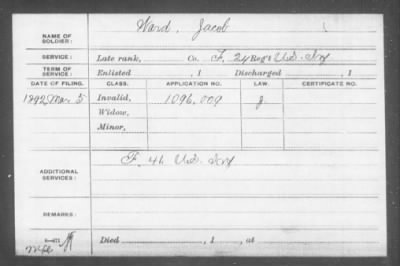 Ward, Jacob
NAME OF SOLDIER:
SERVICE: Late rank, Co. F, 24 Reg't U.S. Inf
TERM OF SERVICE: Enlisted , 1 Discharged , 1
DATE OF FILING. CLASS. APPLICATION NO. LAW. CERTIFICATE NO.
1892 Mar 5 Invalid, 1096,009 J
Widow,
Minor,
ADDITIONAL SERVICES: F. 41 U.S. Inf
REMARKS:
Died , 1 , at